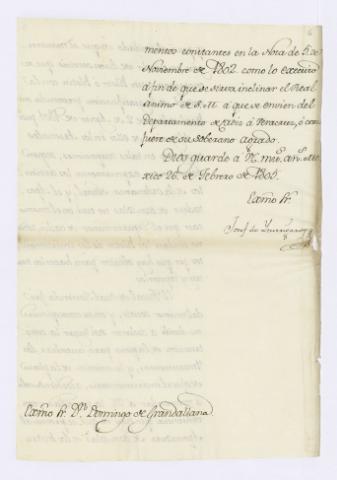 mentos constantes en la Nota de 5 de
Noviembre de 1802 como lo executo
á fin de que se sirva inclinar el Real
animo de S. M. á que se envien del
Departamento de Cadiz á Veracruz, ó como
fuere de su Soberano agrado.
Dios guarde á V.E. mus. an. Me-
xico 26 de Febrero de 1805.
Exmô Sr.
Josef de Yturrigaray
Exmô Sr. Dn. Domingo de Grandallana